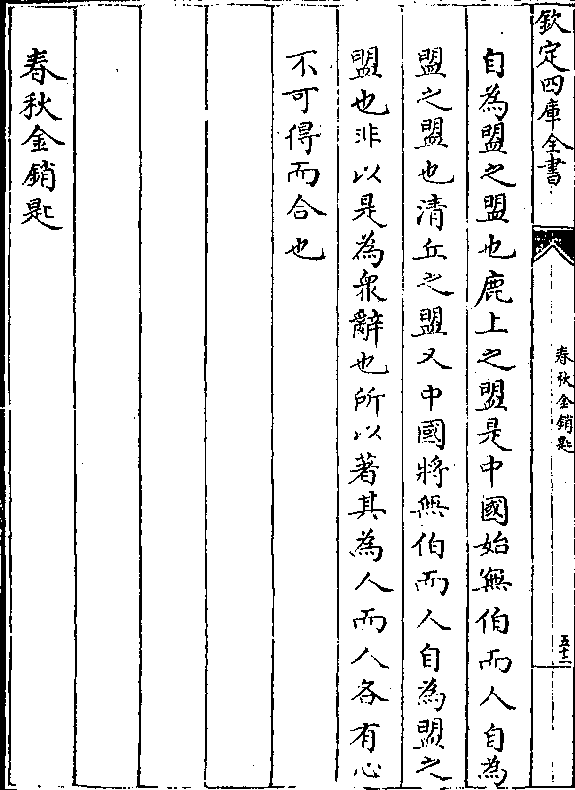 欽定四庫全書
春秋金鎖匙
五十二
自為盟之盟也鹿上之盟是中國始無伯而人自為
盟之盟也清丘之盟又中國將無伯而人自為盟之
盟也非以是為衆辭也所以著其為人而人各有心
不可得而合也
春秋金鎖匙